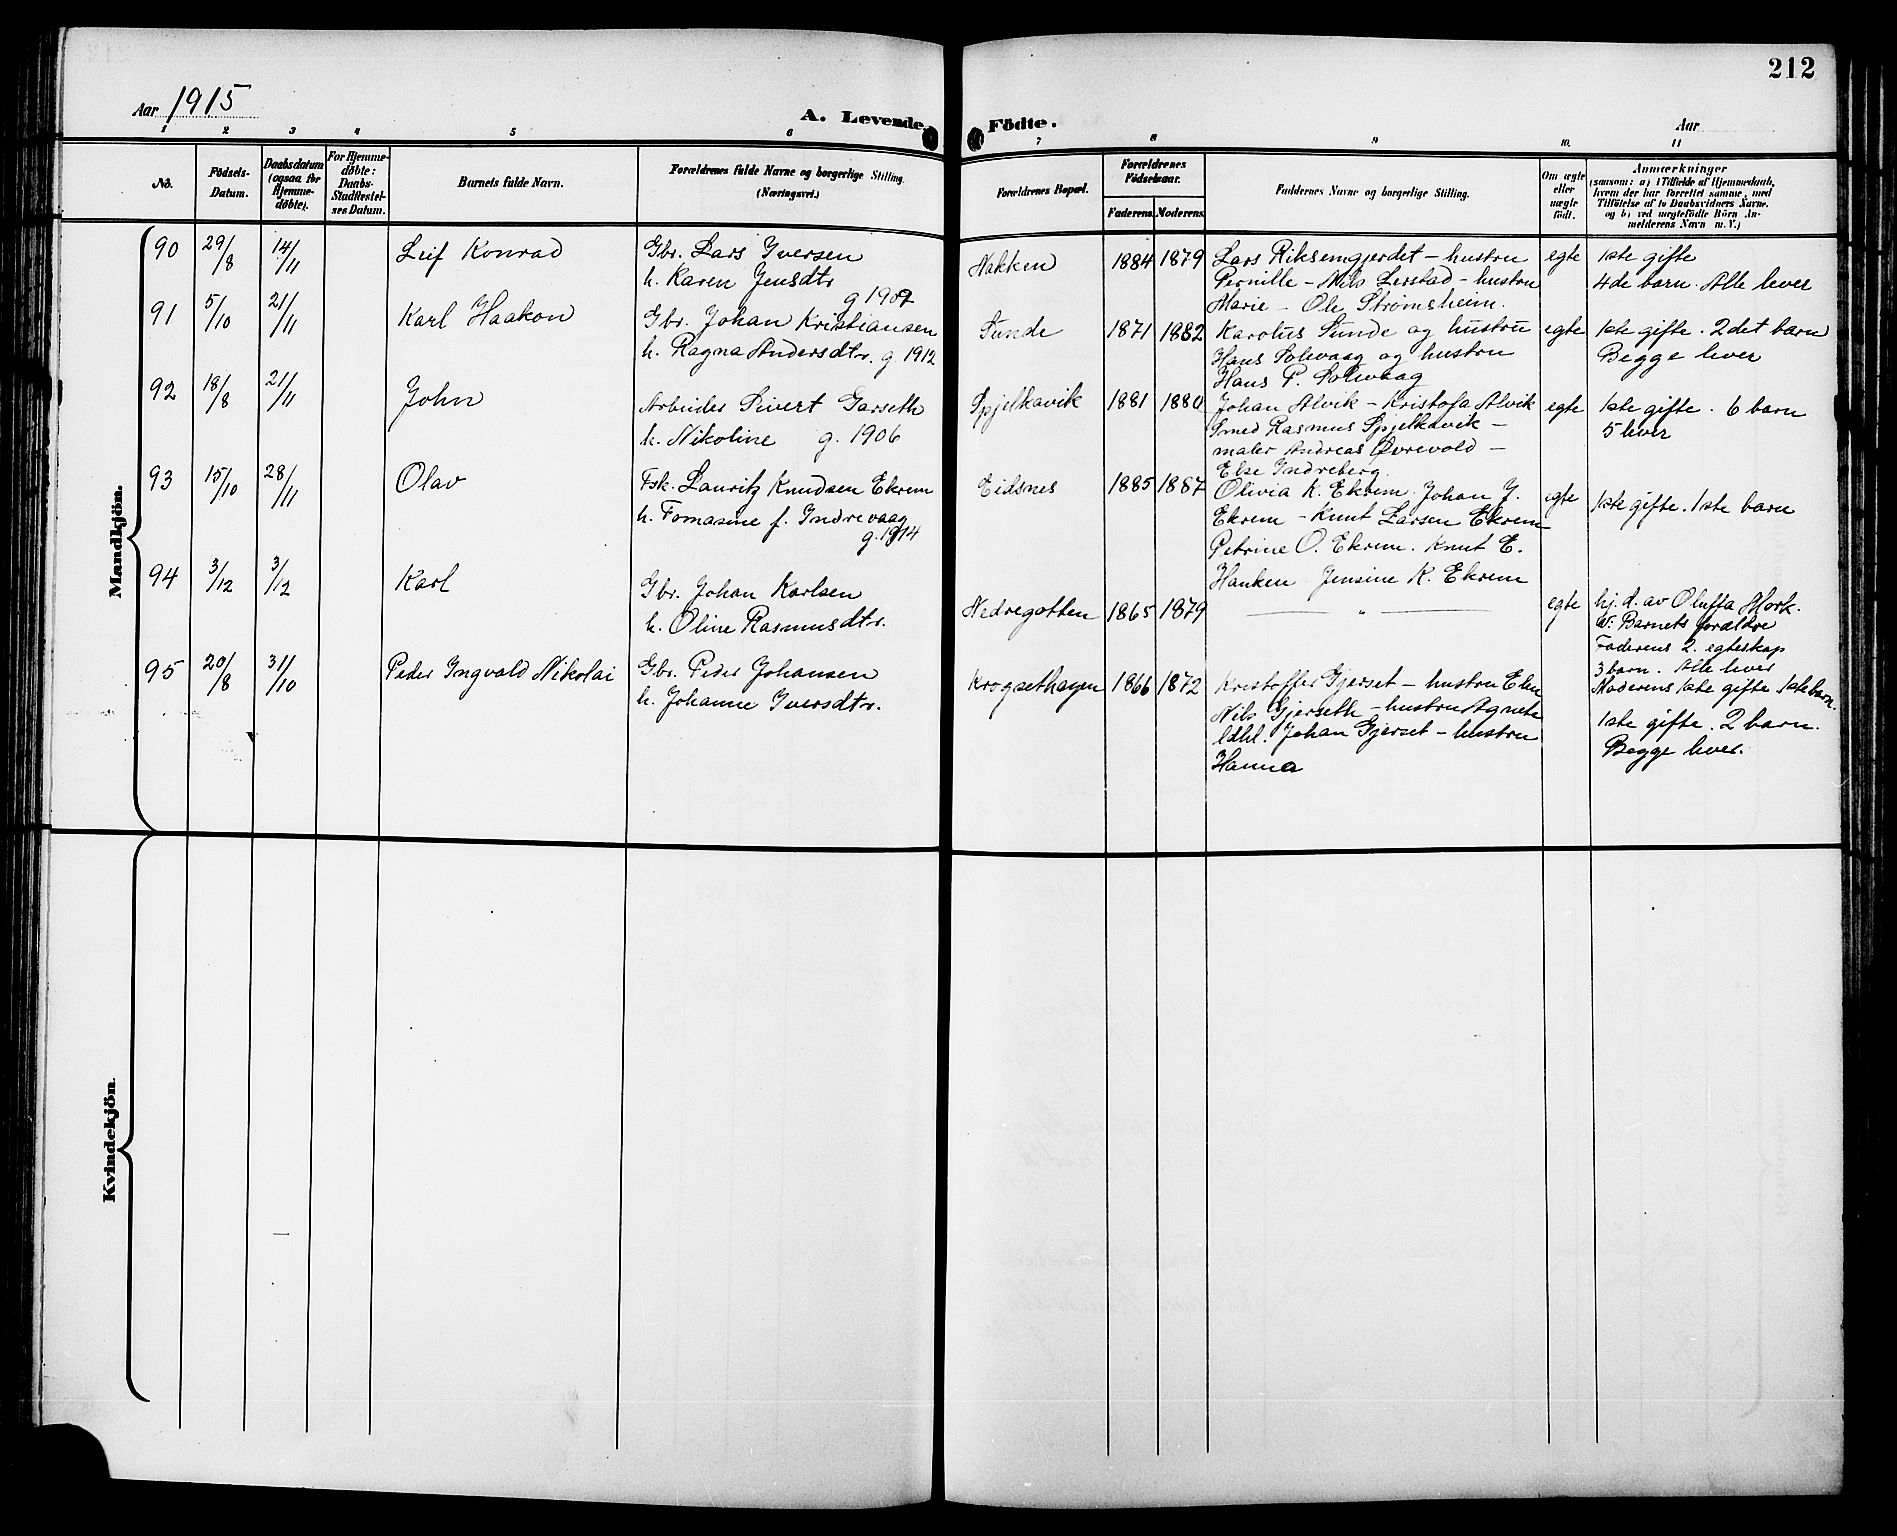 212
Aar 1915
A. Levende Födte.
Aar
1 2 3 4 5 6 7 8 9 10. 11
No.
Födsels-Datum.
Daabsdatum (ogsaa for Hjemmedøbte).
For Hjemmedøbte: Daabs-Stadfestelses Datum.
Barnets fulde Navn.
Forældrenes fulde Navne og borgerlige Stilling. (Næringsvei.)
Forældrenes Bopæl.
Forældrenes Födselsaar.
Faderens. Moderens.
Faddernes Navne og borgerlige Stilling.
Om ægte eller uægte födt.
Anmærkninger
(saasom: a) i Tilfælde af Hjemmedaab, hvem der har forrettet samme, med Tilföielse af to Daabsvidners Navne, og b) ved uægtefödte Börn Anmelderens Navn m. V.)
Mandkjön.
90 29/8 14/11 Leif Konrad
Gbr. Lars Iversen
h. Karen Jensdtr
g 1907
Hakken 1884 1879
Lars Riksemgjerdet – hustru
Pernille – Nils Lerstad – hustru
Marie – Ole Strømsheim.
egte
1ste gifte
4de barn. Alle lever
91 5/10 21/11 Karl Haakon
Gbr. Johan Kristiansen
h. Ragna Andersdtr. g 1912
Sunde 1871 1882
Karolus Sunde og hustru
Hans Solevaag og hustru
Hans P. Solevaag
egte
1ste gifte. 2det barn
Begge lever
92 18/8 21/11 John
Arbeider Sivert Garseth
h. Nikoline g. 1906
Spjelkavik 1881 1880
Johan Alvik – Kristofa Alvik
Smed Rasmus Spjelkavik –
maler Andreas Øvrevold –
Else Indreberg.
egte
1ste gifte. 6 barn
5 lever
93 15/10 28/11 Olav
Fsk. Lauritz Knudsen Ekrem
h. Tomasine f. Indrevaag
g. 1914
Eidsnes 1885 1887
Olivia K. Ekrem. Johan J.
Ekrem – Knut Larsen Ekrem
Petrine O. Ekrem. Knut E.
Hanken. Jensine K. Ekrem
egte
1ste gifte. 1ste barn
94 3/12 3/12 Karl
Gbr. Johan Karlsen
h. Oline Rasmusdtr.
Nedregotten 1865 1879
— „ —
egte
hj. d. av Oluffa Mork.
W: Barnets forældre
Faderens 2. egteskap
3 barn. Alle lever
Moderens 1ste gifte 1ste barn.
95 20/8 31/10 Peder Ingvald Nikolai
Gbr. Peder Johansen
h. Johanne Iversdtr.
Krogsethagen 1866 1872
Kristoffer Gjerset – hustru Elen
Nils Gjerseth – hustru Agnete
Ldhl. Johan Gjerset – hustru
Hanna
1ste gifte. 2 barn.
Begge lever.
Kvindekjön.